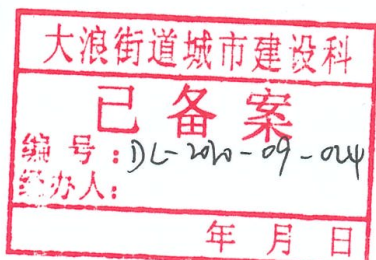 大浪街道城市建设科
已备案
编号:DL-2020-09-024
经办人:
年月日